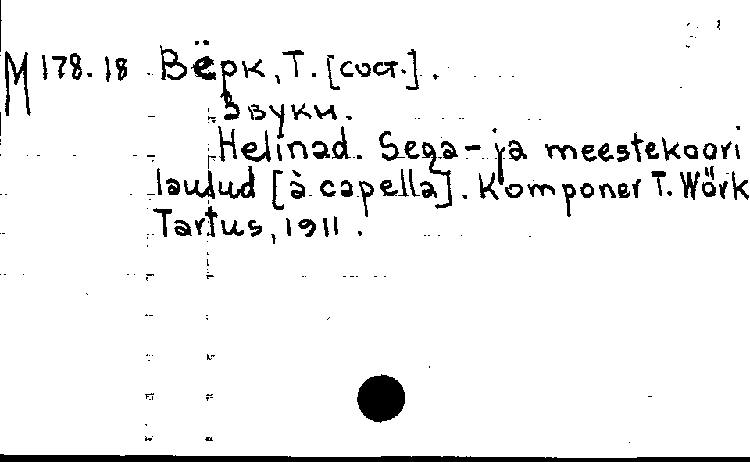 М 178.18 Вёрк, Т. [сост.].
Звуки.
Helinad. Sega- ja meestekoori
laulud [à capella]. Komponer T. Wörk
Tartus, 1911.